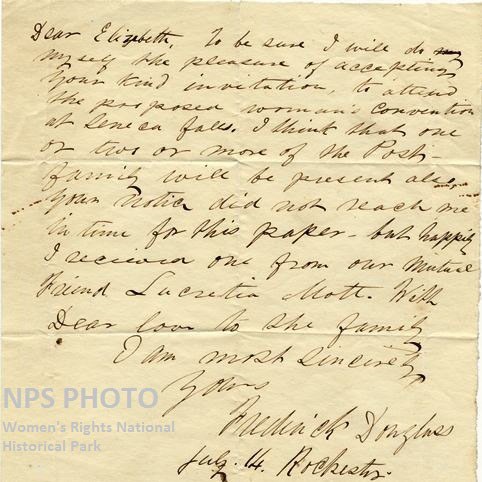 Dear Elizabeth, To be sure I will do my
myself the pleasure of accepting
Your kind invitation, to attend
the proposed woman's convention
at Seneca falls. I think that one
or two or more of the Post-
family will be present also
Your notice did not reach me
in time for this paper - but happily
I received one from our Mutual
Friend Lucretia Mott. With
Dear love to the family
I am most sincerely
Yours
Frederick Douglass
July. 14. Rochester.
NPS PHOTO
Women's Rights National
Historical Park